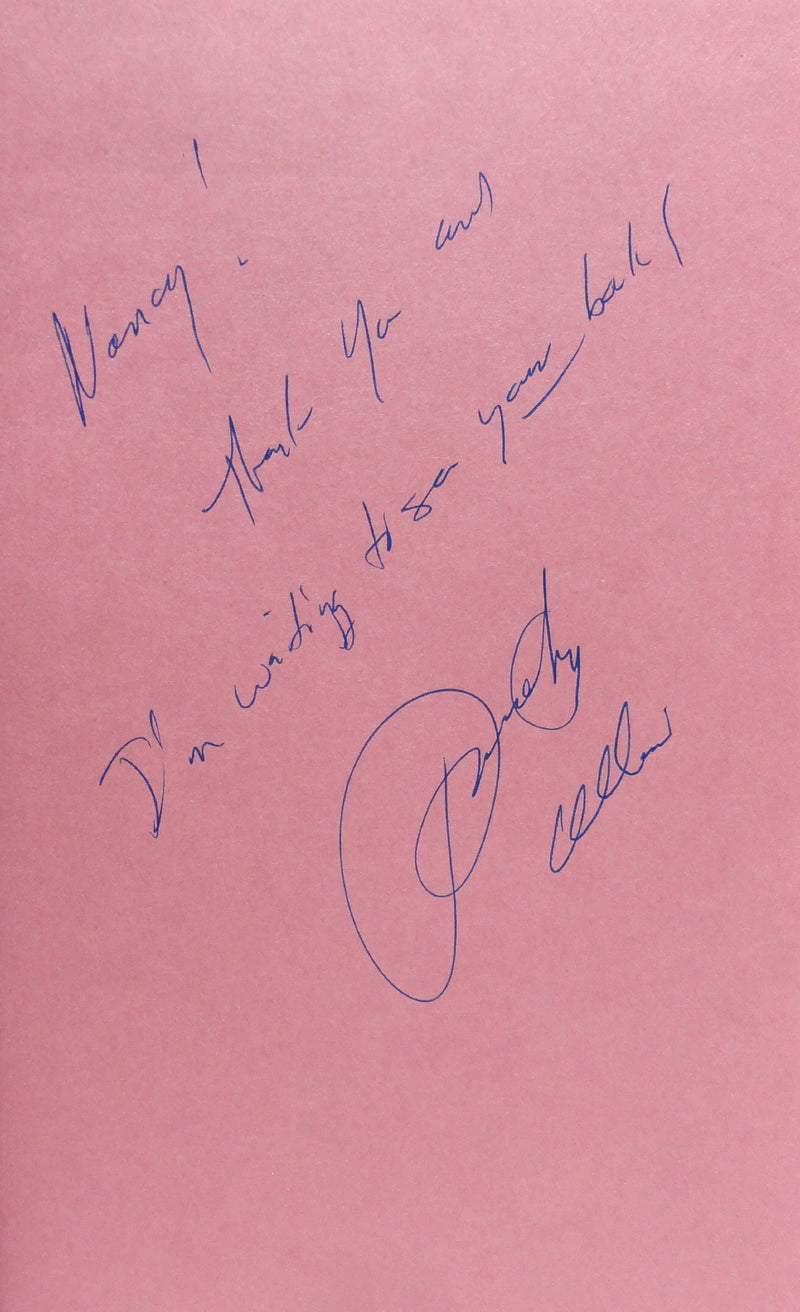 Nancy!
Thank you and
I'm waiting to see your book!
Dorothy